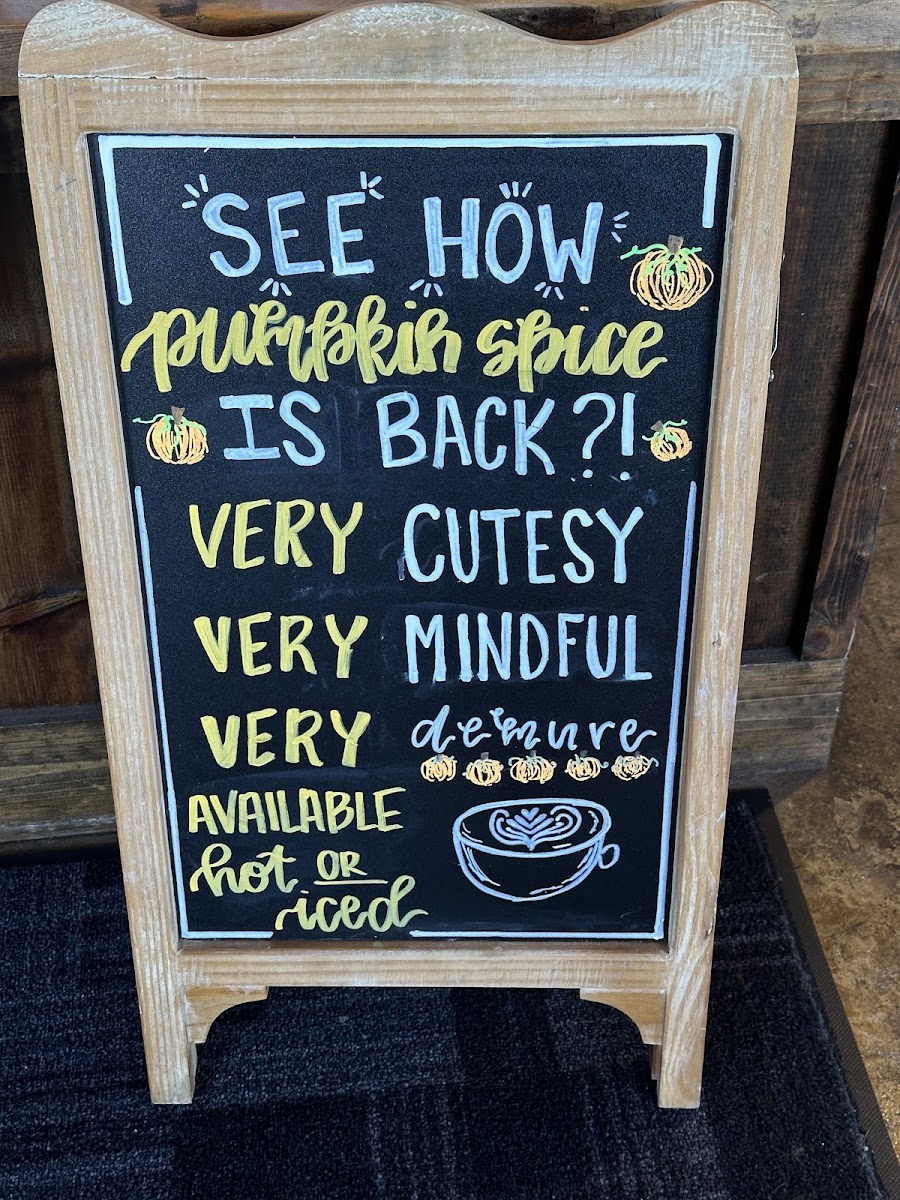 SEE HOW
pumpkin spice
IS BACK?!
VERY CUTESY
VERY MINDFUL
VERY demure
AVAILABLE
hot OR
iced